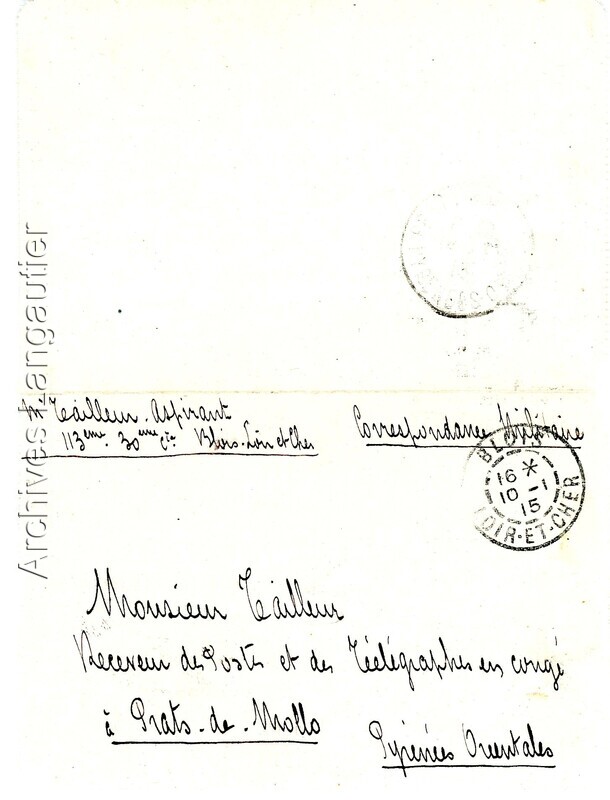 Archives Langautier
Mr Tailleur. Aspirant
113ème. 30ème Cie Blois. Loir et Cher
Correspondance Militaire
BLOIS
16 *
10 - 1
15
LOIR-ET-CHER
Monsieur Tailleur
Receveur des Postes et des Télégraphes en congé
à Prats-de-Mollo
Pyrénées Orientales